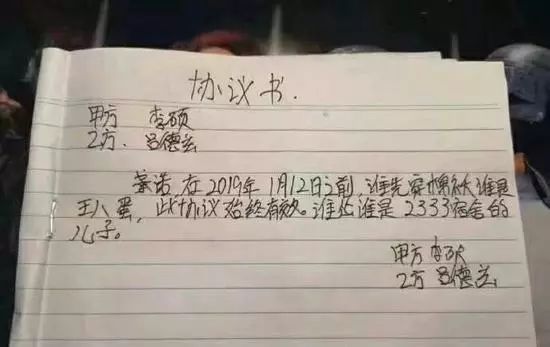 协议书.
甲方 李硕
乙方. 吕德
承诺 在2019年1月12日之前,谁先穿棉 谁是
王八蛋,此协议始终有效。谁 谁是2333宿舍的
儿子。
甲方 李
乙方 吕德